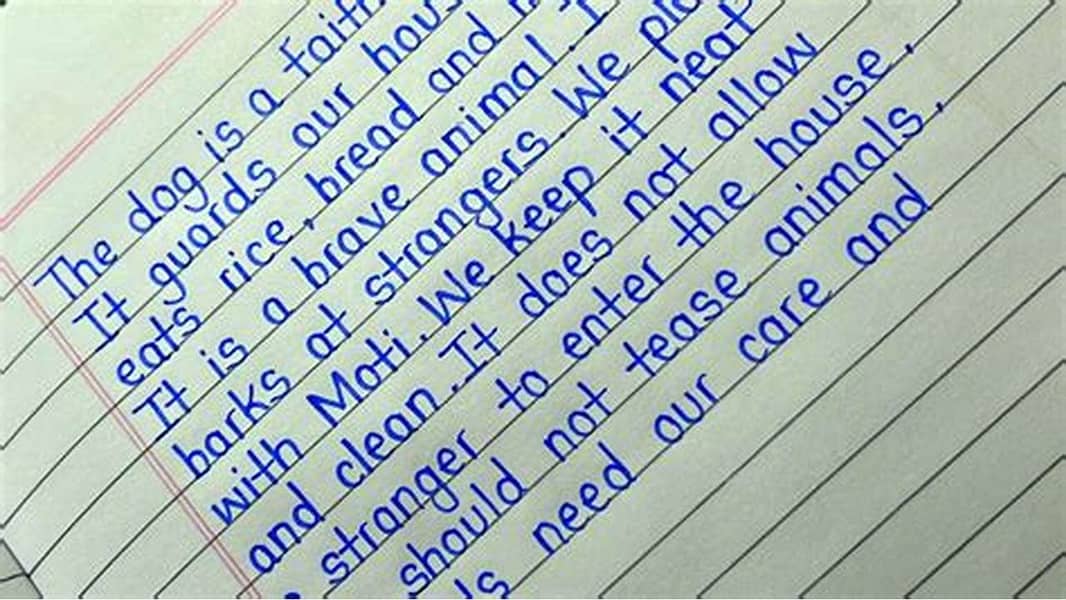 The dog is a
It guards our
eats rice, bread and
It is a brave animal. I
barks at strangers. We
with Moti. We keep it neat
and clean. It does not allow
stranger to enter the house.
should not tease animals.
need our care and